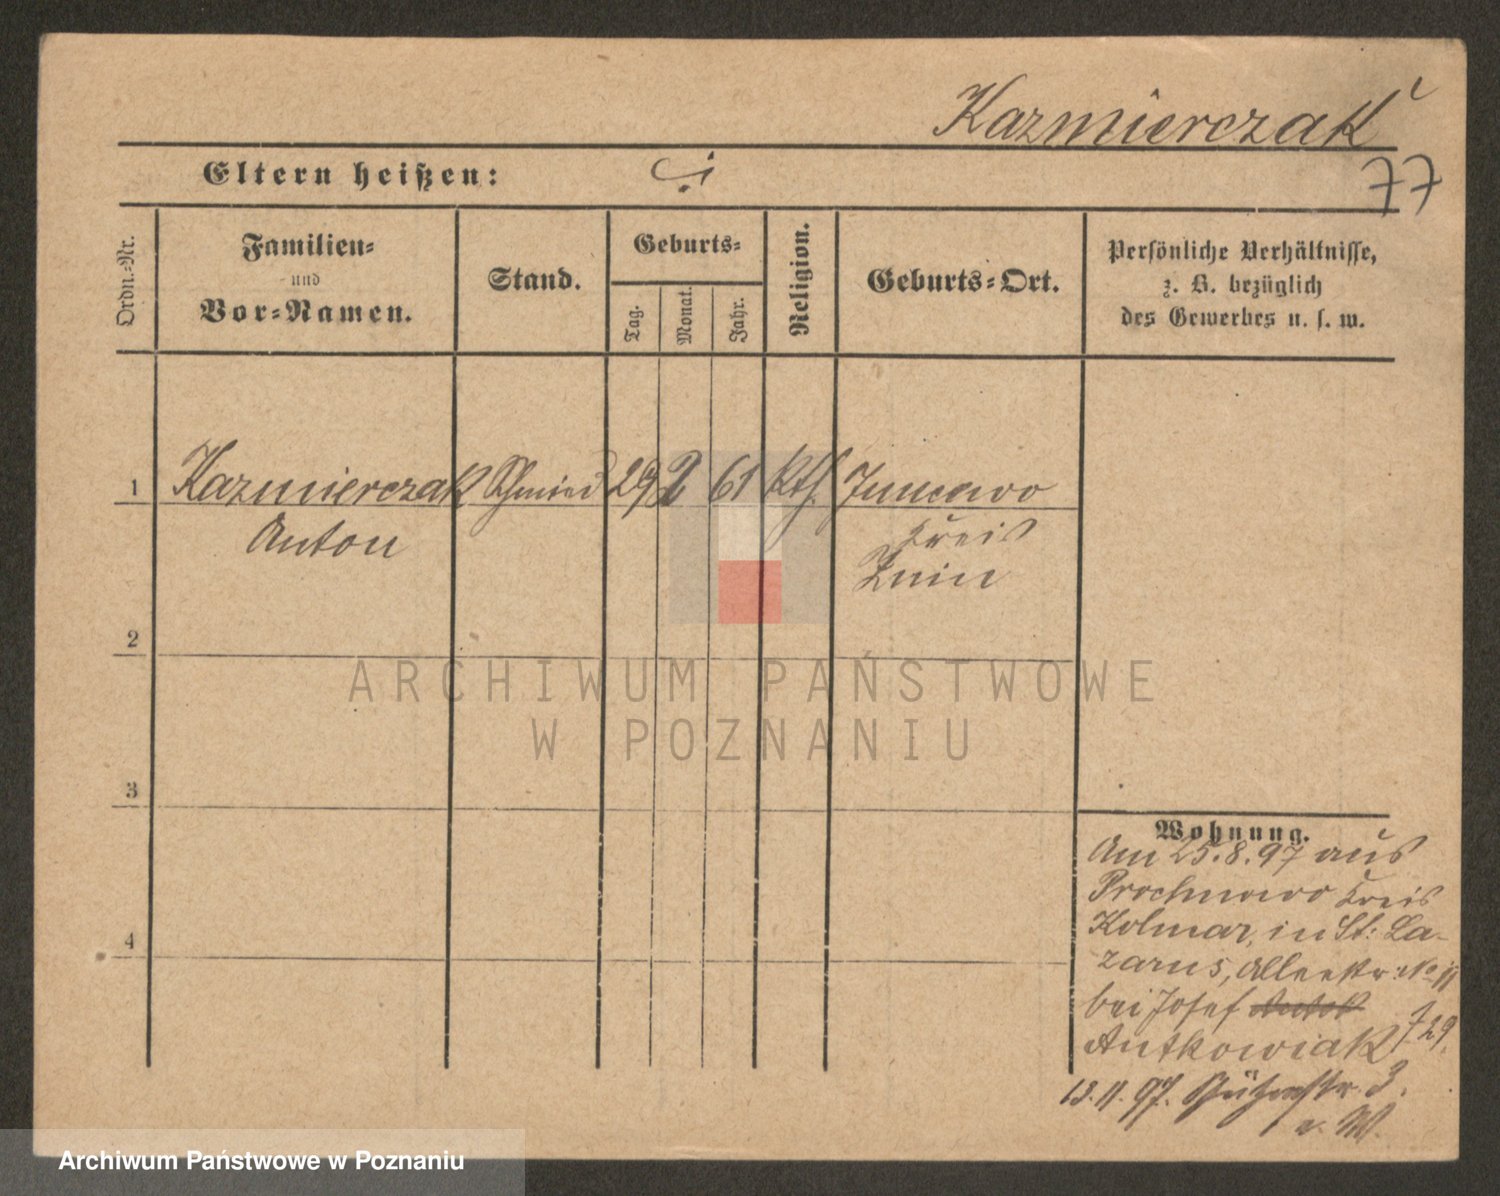 Kazmierczak
77
Eltern heißen:
Ordn.-Nr.
Familien-
und
Vor-Namen.
Stand.
Geburts-
Tag.
Monat.
Jahr.
Religion.
Geburts-Ort.
Persönliche Verhältnisse,
z. B. bezüglich
des Gewerbes u. s. w.
1 Kazmierczak Schmied 29 2 61 Kth.
Anton
Kreis
Znin
2
3
4
Wohnung.
Am 25.8.97 aus
Prochnowo Kreis
Kolmar, in St: La-
zarus, Alleestr: No 11
bei Josef
Antkowiak
13.11.97. Schützenstr. 3.
ARCHIWUM PAŃSTWOWE
W POZNANIU
Archiwum Państwowe w Poznaniu